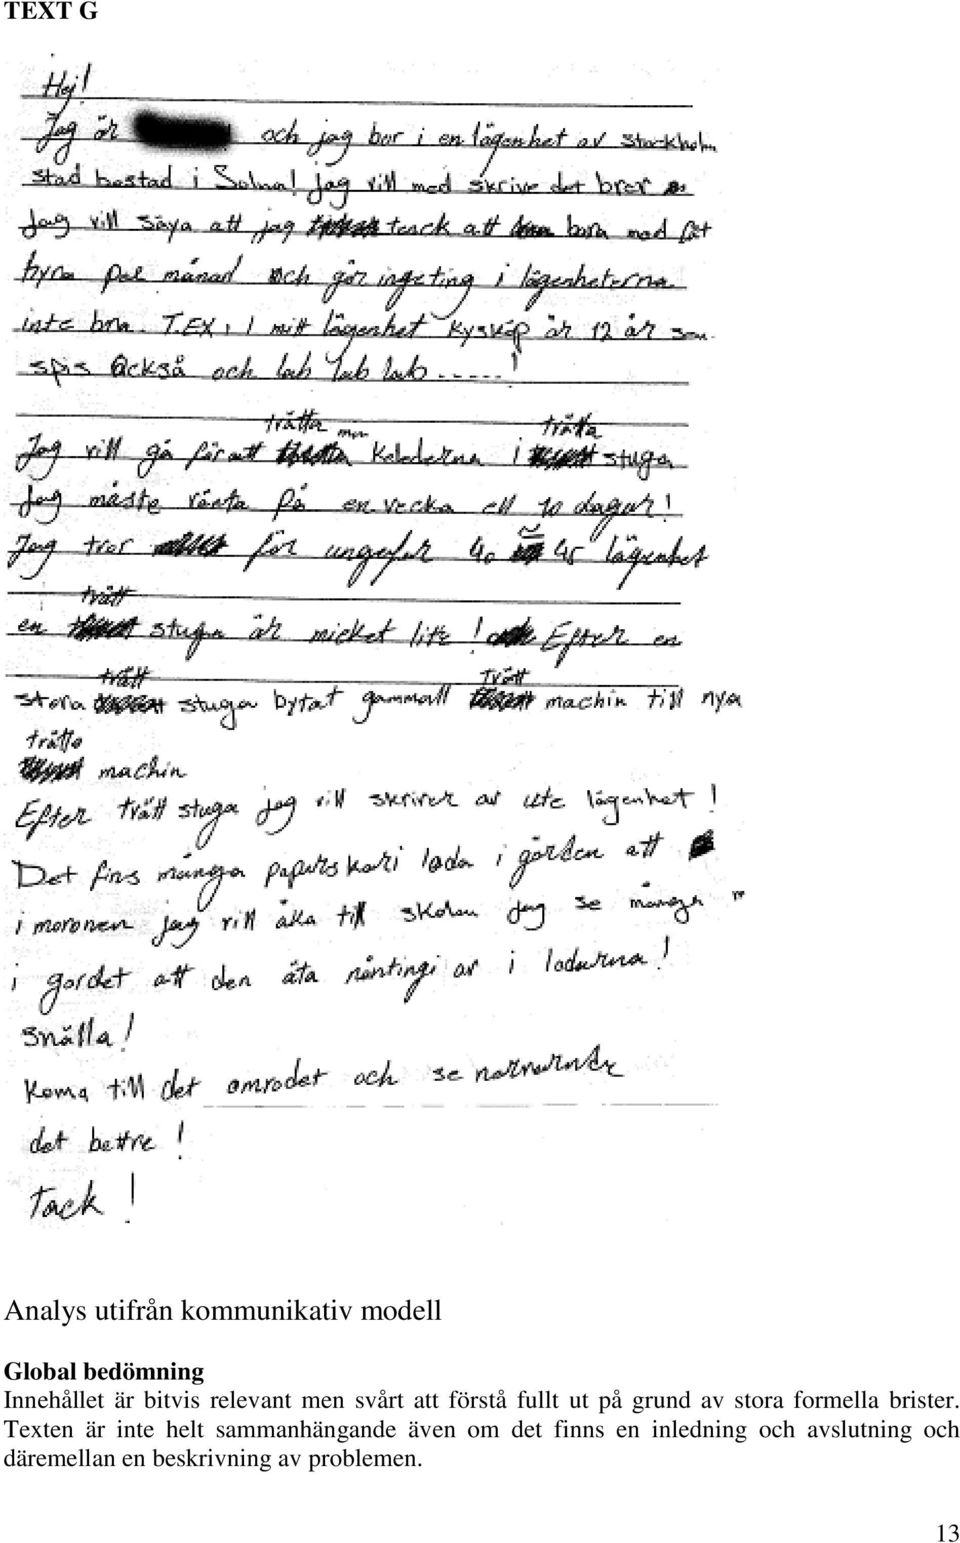 TEXT G
Hej!
Jag är och jag bor i en lägenhet av stockholm
stad bostad i Solna! Jag vill med skrive det brev
Jag vill säya att jag tack att bora med låt
hyra på månad och gör ingeting i lägenheterna
inte bra. T.EX, I mitt lägenhet kyskåp är 12 år
spis Också och lab lab lab.....!
trätta trätta
Jag vill gå för att men kelederna i stuga
Jag måste vänta på en vecka ell 10 dagar!
Jag tror för ungefer 40 45 lägenhet
tvätt
en stuga är micket lite! Efter en
tvätt Tvätt
stora stuga bytat gammall machin till nya
trätto
machin
Efter tvätt stuga jag vill skriver av ute lägenhet!
Det fins många paperskori loda i gården att
i moronen jag vill åka till skolan Jag se många
i gordet att den äta nåntingi av i lodurna!
Snälla!
Koma till det området och se
det bettre!
Tack!
Analys utifrån kommunikativ modell
Global bedömning
Innehållet är bitvis relevant men svårt att förstå fullt ut på grund av stora formella brister.
Texten är inte helt sammanhängande även om det finns en inledning och avslutning och
däremellan en beskrivning av problemen.
13